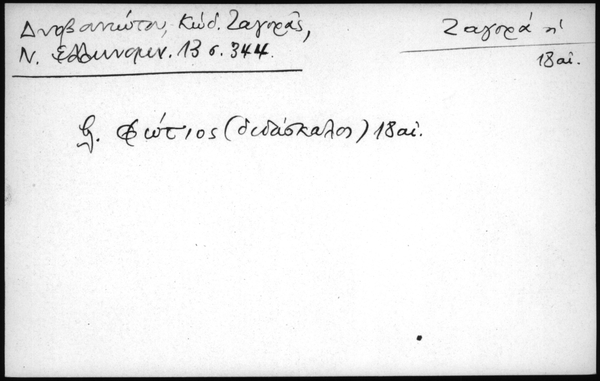 Δυοβουνιώτου, Κώδ. Ζαγορᾶς,
Ν. Ἑλληνομν. 13 σ. 344.
Ζαγορά ἡ
18 αἰ.
β. Φώτιος (διδάσκαλος) 18 αἰ.